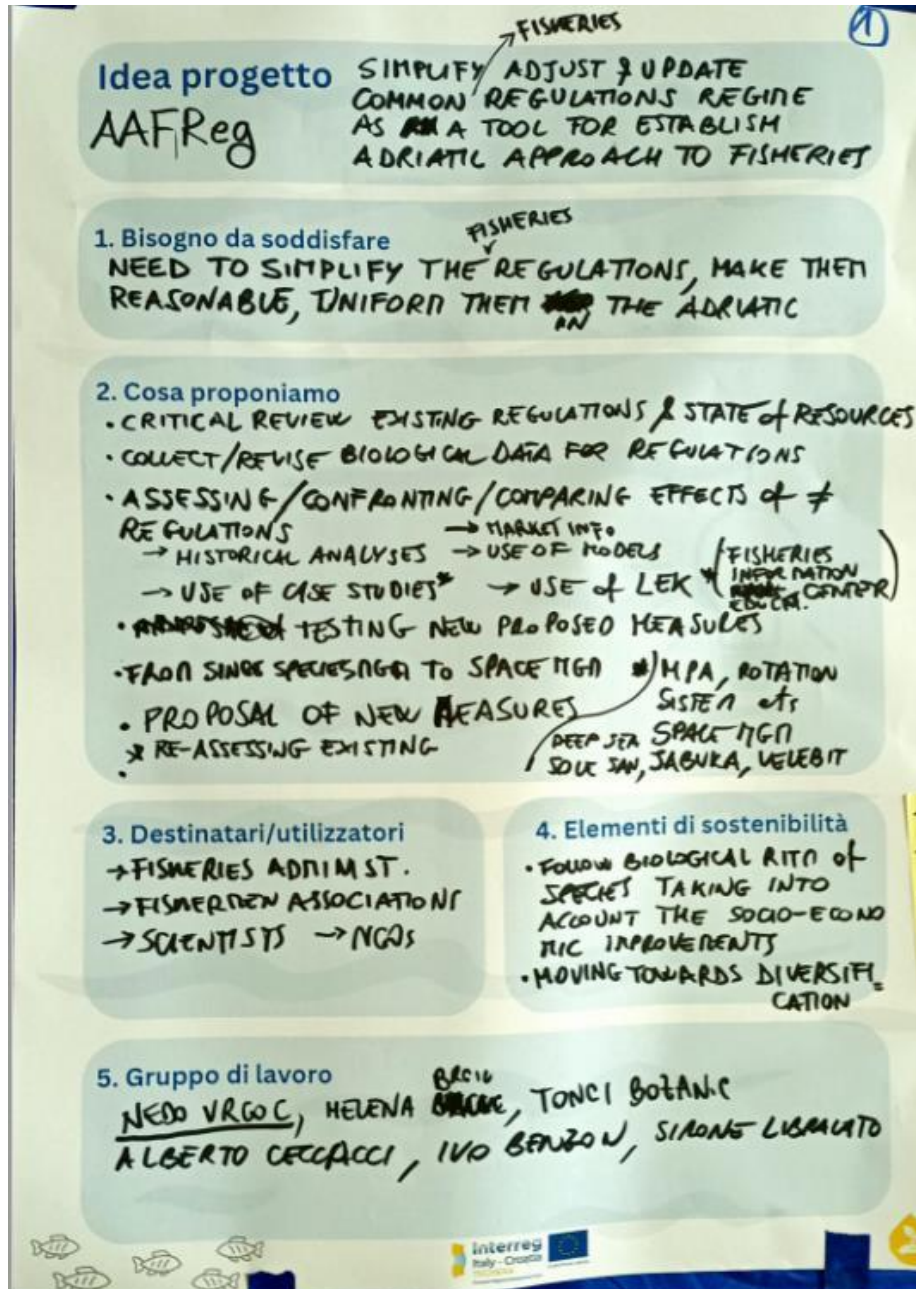 1
FISHERIES
Idea progetto
AAFReg
SIMPLIFY ADJUST & UPDATE
COMMON REGULATIONS REGIME
AS A TOOL FOR ESTABLISH
ADRIATIC APPROACH TO FISHERIES
1. Bisogno da soddisfare
FISHERIES
NEED TO SIMPLIFY THE REGULATIONS, MAKE THEM
REASONABLE, UNIFORM THEM IN THE ADRIATIC
2. Cosa proponiamo
• CRITICAL REVIEW EXISTING REGULATIONS & STATE of RESOURCES
• COLLECT/REVISE BIOLOGICAL DATA FOR REGULATIONS
• ASSESSING/CONFRONTING/COMPARING EFFECTS of ≠
REGULATIONS → MARKET INFO
→ HISTORICAL ANALYSES → USE OF MODELS
→ USE OF CASE STUDIES* → USE of LEK * (FISHERIES
INFORMATION
EDUCA. CENTER)
• TESTING NEW PROPOSED MEASURES
• FROM SINGE SPECIES MGM TO SPACE MGM
* MPA, ROTATION
SISTEM etc
SPACE MGM
DEEP SEA
SOLE SAN, JABUKA, VELEBIT
• PROPOSAL OF NEW MEASURES
* RE-ASSESSING EXISTING
•
3. Destinatari/utilizzatori
→ FISHERIES ADMINIST.
→ FISHERMEN ASSOCIATIONS
→ SCIENTISTS → NGOs
4. Elementi di sostenibilità
• FOLLOW BIOLOGICAL RITM of
SPECIES TAKING INTO
ACCOUNT THE SOCIO-ECONO
MIC IMPROVEMENTS
• MOVING TOWARDS DIVERSIFI=
CATION
5. Gruppo di lavoro
NEDO VRGOC, HELENA, TONCI BOŽANIC
ALBERTO CECCACCI, IVO BENZON, SIMONE LIBRALATO
Interreg
Italy - Croatia